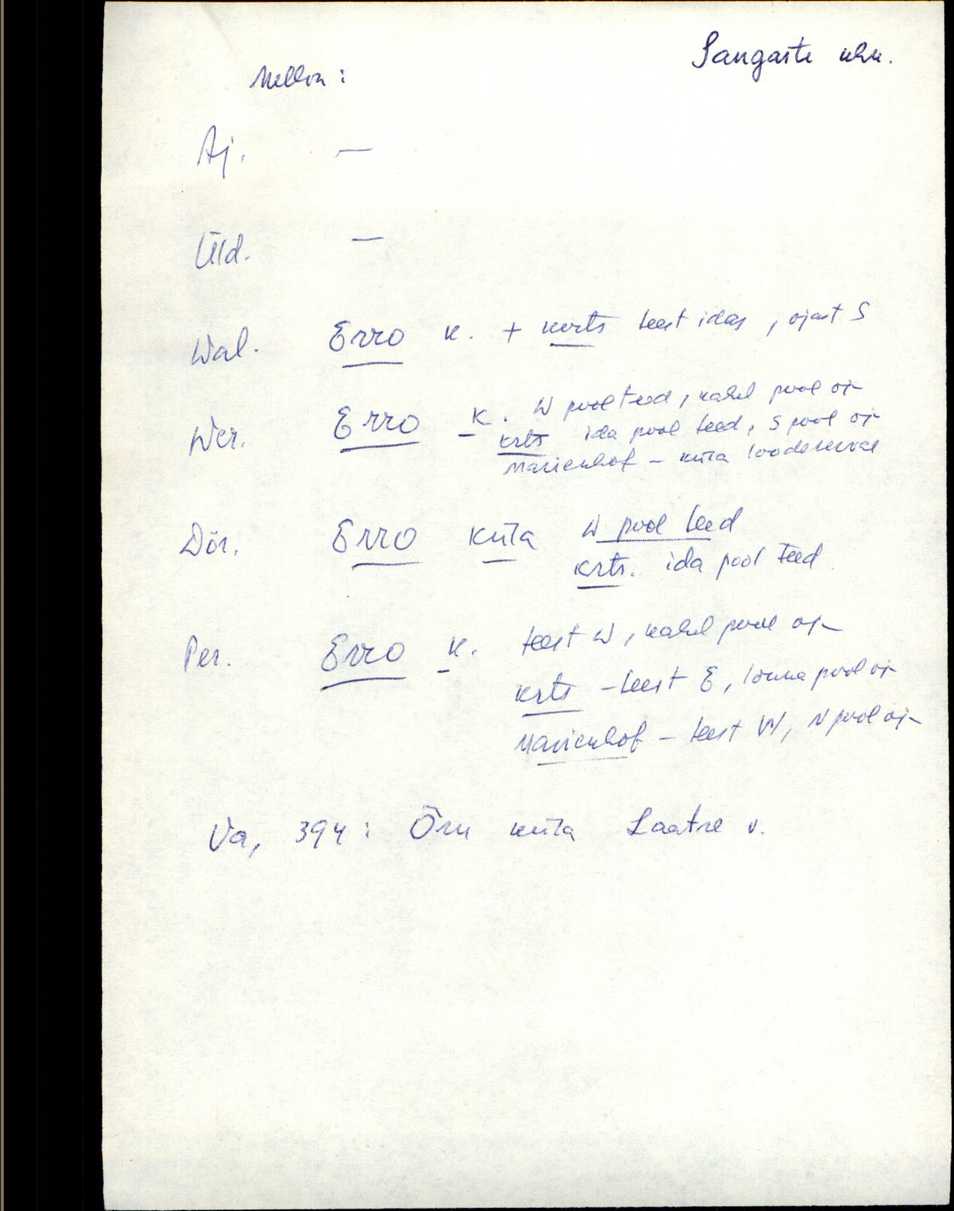 Sangaste khk.
Mellin:
Aj. —
Üld. —
Wal. Erro k. + krts teest idas, ojast S
Wer. Erro k. W pool teed, kahel pool oj-
krts ida pool teed, S pool oj-
Marienhof – küla
Dör. Erro küla W pool teed
krts. ida pool teed
Per. Erro k. teest W, kahel pool oj-
krts – teest E, lõuna pool oj-
Marienhof – teest W, N pool oj-
Va, 394: Õru küla Laatre v.